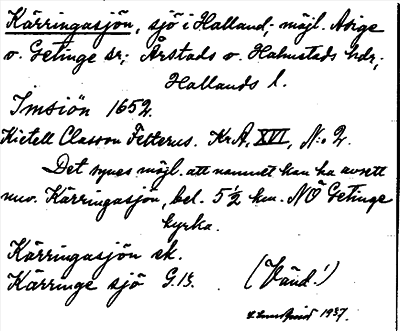 Kärringasjön, sjö i Halland; möjl. Abige
o. Getinge sr; Årstads o. Halmstads hdr;
Hallands l.
Imsiön 1652.
Kietell Classon Felterus. KrA, XVI, N:o 2.
Det synes möjl. att namnet kan ha avsett
nuv. Kärringasjön, bel. 5 1/2 km. NÖ Getinge
kyrka.
Kärringasjön ek.
Kärringe sjö G.B. (Vänd!)
1937.